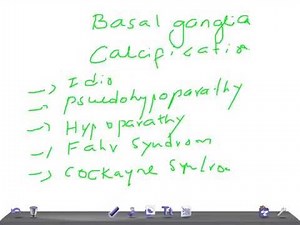 Basal ganglia
Calcification
→ Idio
→ Pseudohypoparathy
→ Hypoparathy
→ Fahr Syndrom
→ COCKayne Syndrom